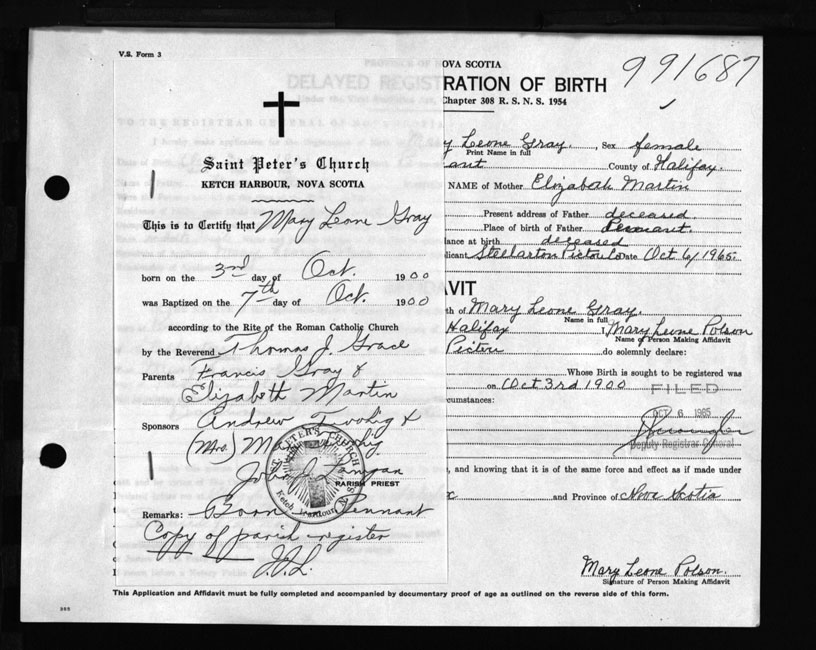 V.S. Form 3
Saint Peter's Church
KETCH HARBOUR, NOVA SCOTIA
This is to Certify that Mary Leone Gray
born on the 3rd day of Oct. 1900
was Baptized on the 7th day of Oct. 1900
according to the Rite of the Roman Catholic Church
by the Reverend Thomas J. Grace
Parents Francis Gray &
Elizabeth Martin
Sponsors Andrew Twohig &
(Mrs.)
John J. Lanigan
PARISH PRIEST
Remarks: Born Pennant
Copy of parish register
J.J.L.
NOVA SCOTIA
991687
RATION OF BIRTH
Chapter 308 R. S. N. S. 1954
y Leone Gray. Sex female
Print Name in full
ant County of Halifax.
NAME of Mother Elizabeth Martin
Present address of Father deceased
Place of birth of Father Pennant.
ance at birth deceased
licant Stellarton Pictou Co Date Oct 6/1965.
AVIT
th of Mary Leone Gray.
Name in full
Halifax I, Mary Leone Polson
Name of Person Making Affidavit
Pictou do solemnly declare:
Whose Birth is sought to be registered was
on Oct 3rd 1900
FILED
cumstances:
OCT 6 1965
Deputy Registrar General
, and knowing that it is of the same force and effect as if made under
and Province of Nova Scotia
Mary Leone Polson.
Signature of Person Making Affidavit
This Application and Affidavit must be fully completed and accompanied by documentary proof of age as outlined on the reverse side of this form.